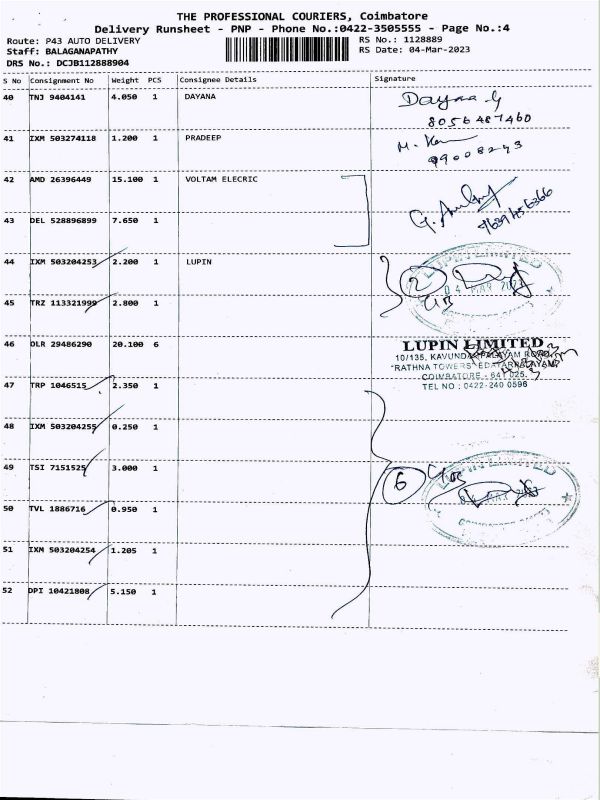 THE PROFESSIONAL COURIERS, Coimbatore
Delivery Runsheet - PNP - Phone No.:0422-3505555 - Page No.:4
Route: P43 AUTO DELIVERY
Staff: BALAGANAPATHY
DRS No.: DCJB112888904
RS No.: 1128889
RS Date: 04-Mar-2023
S No Consignment No Weight PCS Consignee Details Signature
40 TNJ 9404141 4.050 1 DAYANA
Dayana G
8056487460
41 IXM 503274118 1.200 1 PRADEEP
42 AMD 26396449 15.100 1 VOLTAM ELECRIC
43 DEL 528896899 7.650 1
44 IXM 503204253 2.200 1 LUPIN
2
04 MAR
45 TRZ 113321999 2.800 1
46 DLR 29486290 20.100 6
LUPIN LIMITED
10/135, KAVUNDAMPALAYAM ROAD,
"RATHNA TOWERS" EDAYARPALAYAM
COIMBATORE - 641 025.
TEL NO : 0422-240 0596
47 TRP 1046515 2.350 1
48 IXM 503204255 0.250 1
49 TSI 7151525 3.000 1
6
LUPIN LIMITED
50 TVL 1886716 0.950 1
51 IXM 503204254 1.205 1
52 DPI 10421808 5.150 1